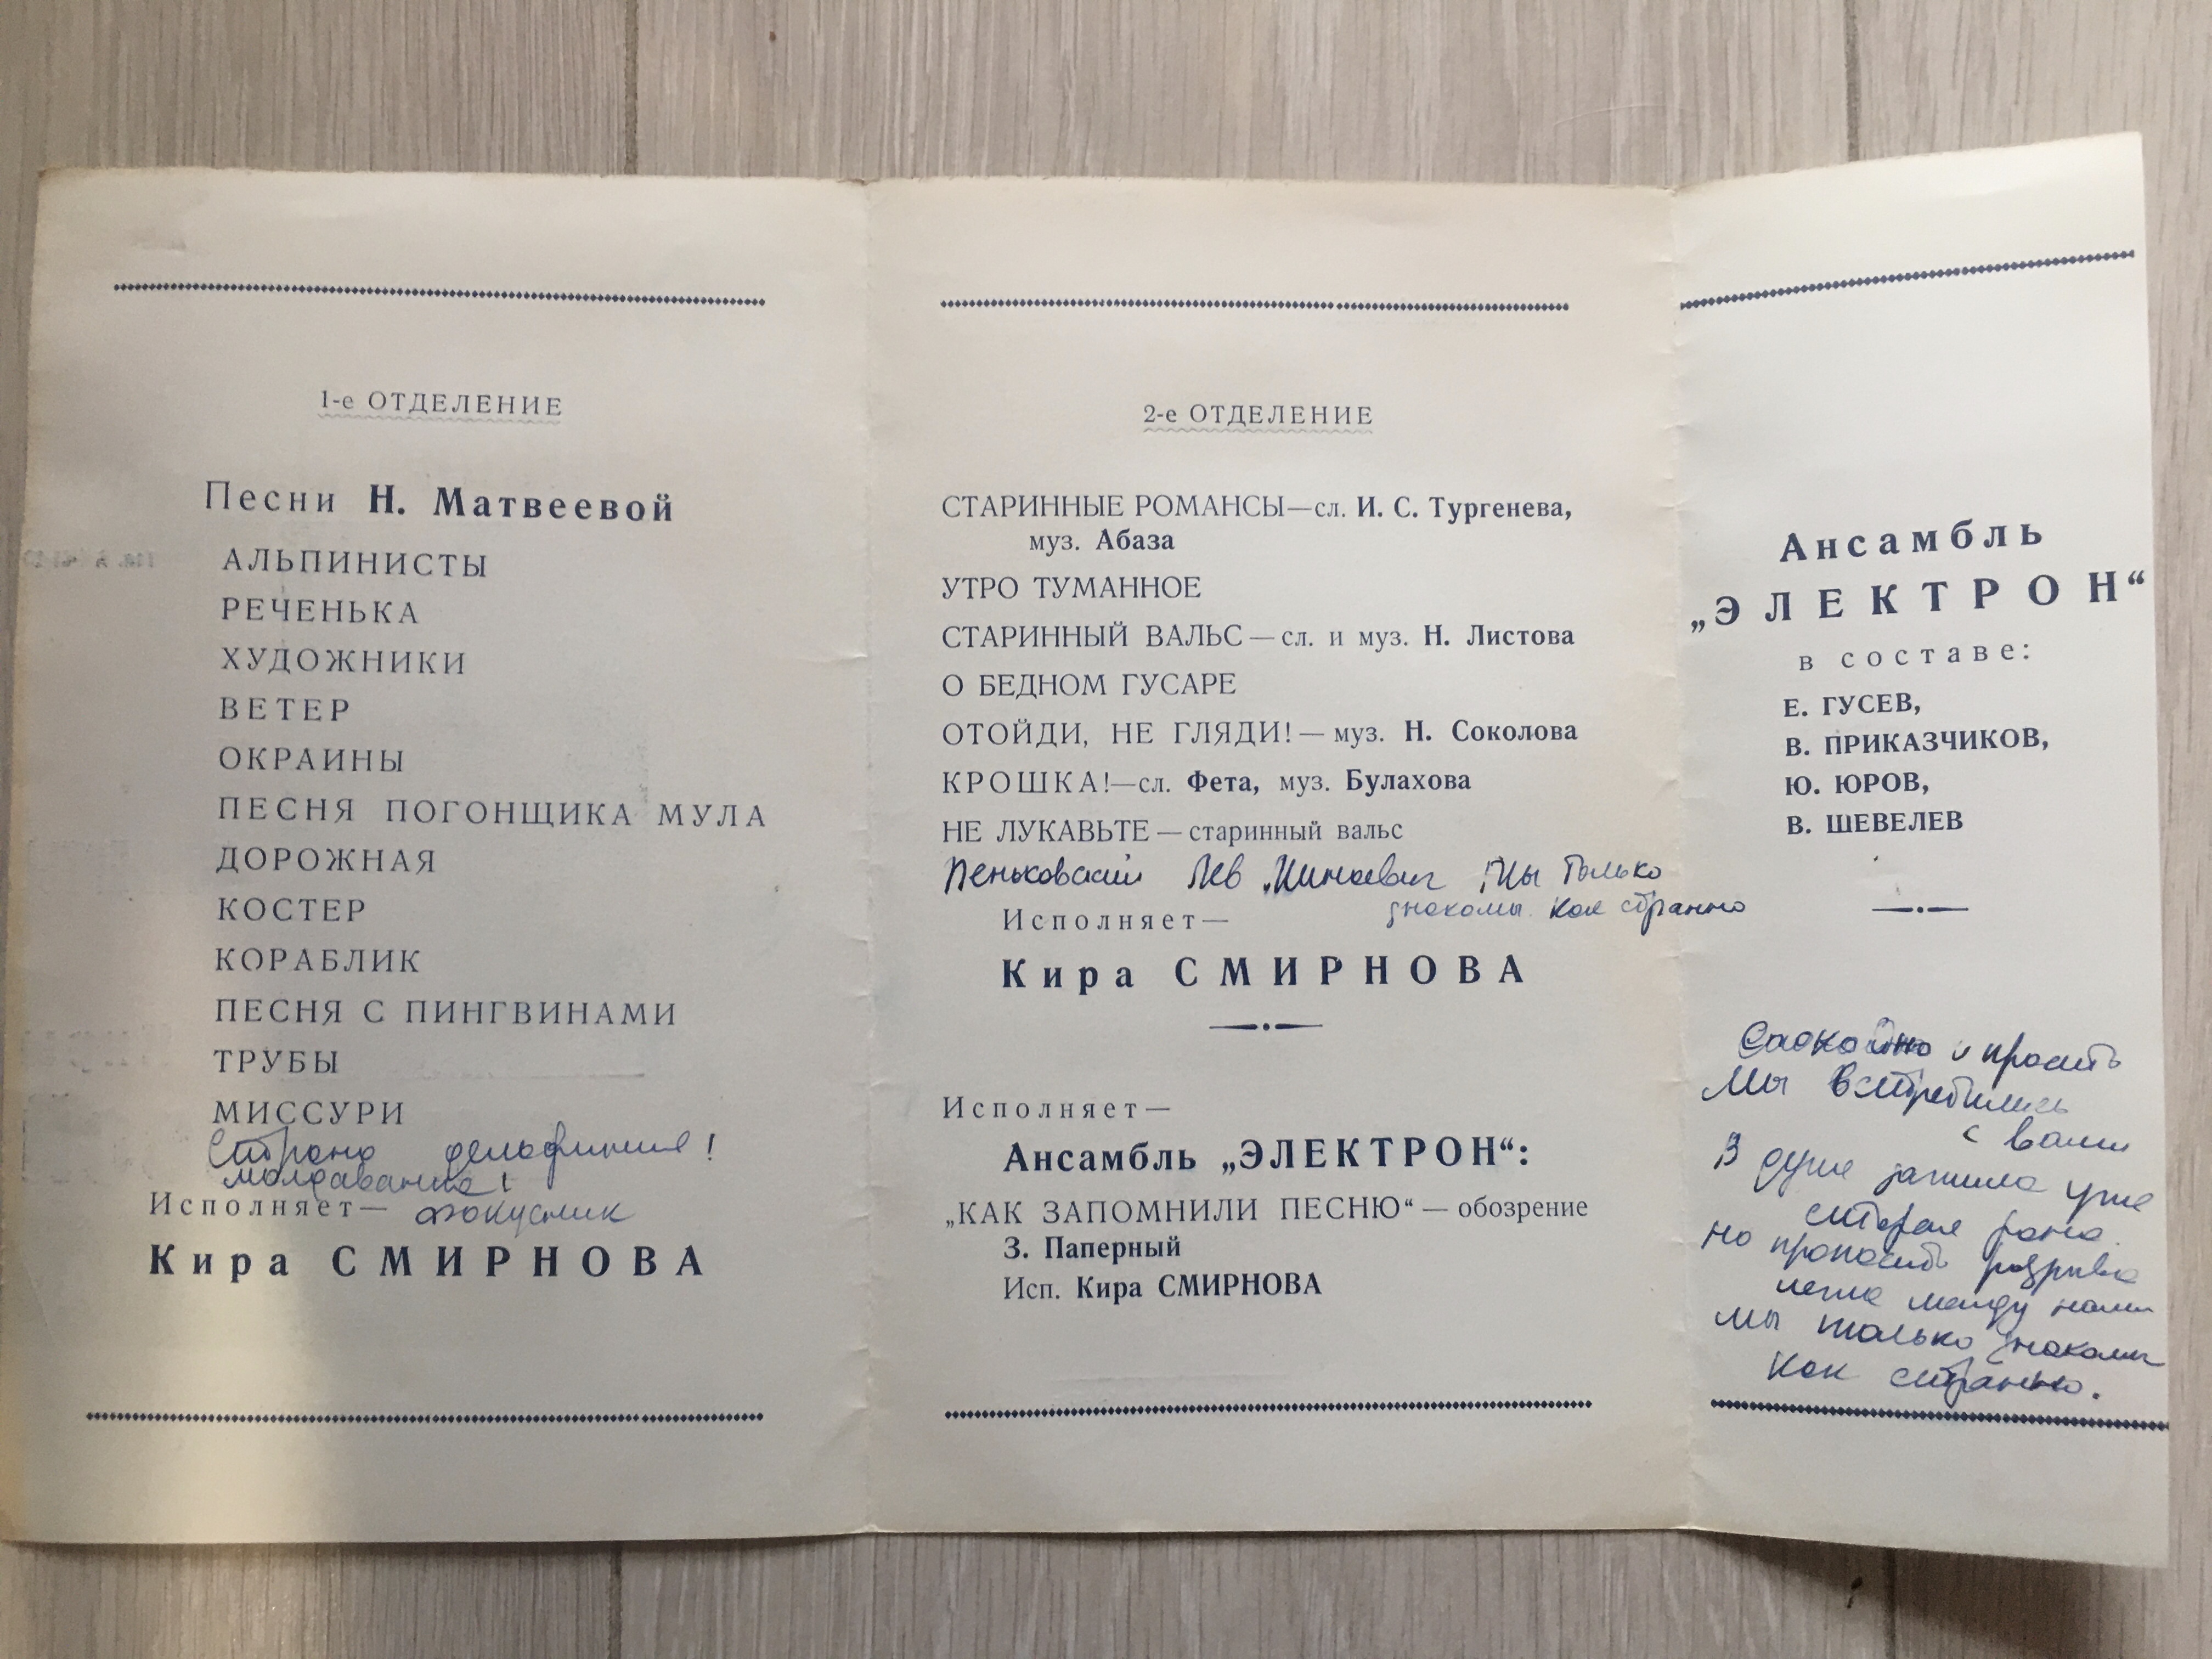 1-е ОТДЕЛЕНИЕ
Песни Н. Матвеевой
АЛЬПИНИСТЫ
РЕЧЕНЬКА
ХУДОЖНИКИ
ВЕТЕР
ОКРАИНЫ
ПЕСНЯ ПОГОНЩИКА МУЛА
ДОРОЖНАЯ
КОСТЕР
КОРАБЛИК
ПЕСНЯ С ПИНГВИНАМИ
ТРУБЫ
МИССУРИ
Страна дельфиния!
молдаване!
Исполняет— фокусник
Кира СМИРНОВА
2-е ОТДЕЛЕНИЕ
СТАРИННЫЕ РОМАНСЫ—сл. И. С. Тургенева,
муз. Абаза
УТРО ТУМАННОЕ
СТАРИННЫЙ ВАЛЬС — сл. и муз. Н. Листова
О БЕДНОМ ГУСАРЕ
ОТОЙДИ, НЕ ГЛЯДИ! — муз. Н. Соколова
КРОШКА!—сл. Фета, муз. Булахова
НЕ ЛУКАВЬТЕ — старинный вальс
Пеньковский Лев Мы только
знакомы. Как странно
Исполняет—
Кира СМИРНОВА
Исполняет—
Ансамбль „ЭЛЕКТРОН“:
„КАК ЗАПОМНИЛИ ПЕСНЮ“ — обозрение
З. Паперный
Исп. Кира СМИРНОВА
Ансамбль
„ЭЛЕКТРОН“
в составе:
Е. ГУСЕВ,
В. ПРИКАЗЧИКОВ,
Ю. ЮРОВ,
В. ШЕВЕЛЕВ
Спокойно и просто
Мы встретились
с вами
В душе зажила уже
старая рана.
Но пропасть разрыва
легла между нами
Мы только знакомы
Как странно.